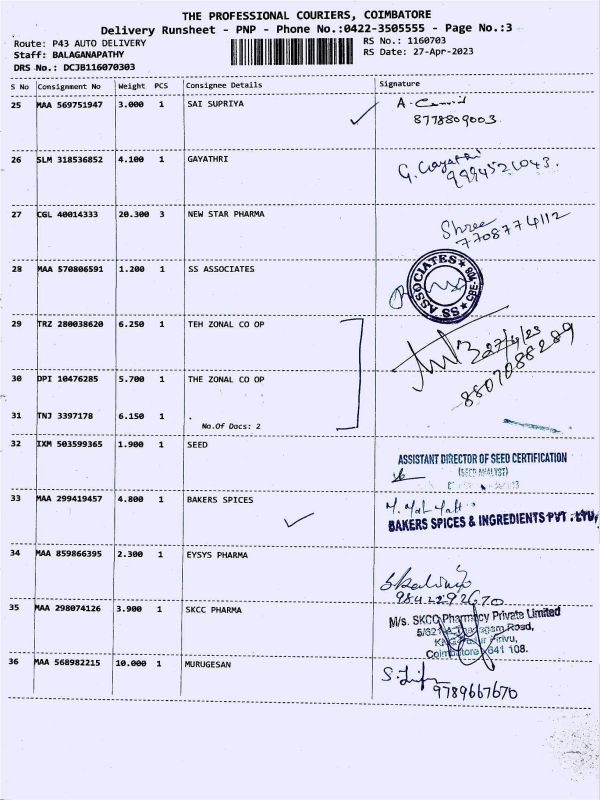 THE PROFESSIONAL COURIERS, COIMBATORE
Delivery Runsheet - PNP - Phone No.:0422-3505555 - Page No.:3
Route: P43 AUTO DELIVERY
RS No.: 1160703
Staff: BALAGANAPATHY
RS Date: 27-Apr-2023
DRS No.: DCJB116070303
S No Consignment No Weight PCS Consignee Details Signature
25 MAA 569751947 3.000 1 SAI SUPRIYA
8778809003
26 SLM 318536852 4.100 1 GAYATHRI G. Gayathri
9994521043.
27 CGL 40014333 20.300 3 NEW STAR PHARMA Shree
7708774112
28 MAA 570806591 1.200 1 SS ASSOCIATES
SS ASSOCIATES
29 TRZ 280038620 6.250 1 TEH ZONAL CO OP
27/4/23
8807088289
30 DPI 10476285 5.700 1 THE ZONAL CO OP
31 TNJ 3397178 6.150 1 .
No.Of Docs: 2
32 IXM 503599365 1.900 1 SEED
ASSISTANT DIRECTOR OF SEED CERTIFICATION
(SEED ANALYST)
33 MAA 299419457 4.800 1 BAKERS SPICES
BAKERS SPICES & INGREDIENTS PVT. LTD.
34 MAA 859866395 2.300 1 EYSYS PHARMA
9842292670
35 MAA 298074126 3.900 1 SKCC PHARMA
M/s. SKCC Pharmacy Private Limited
Road,
Coimbatore 641 108.
36 MAA 568982215 10.000 1 MURUGESAN
9789667670